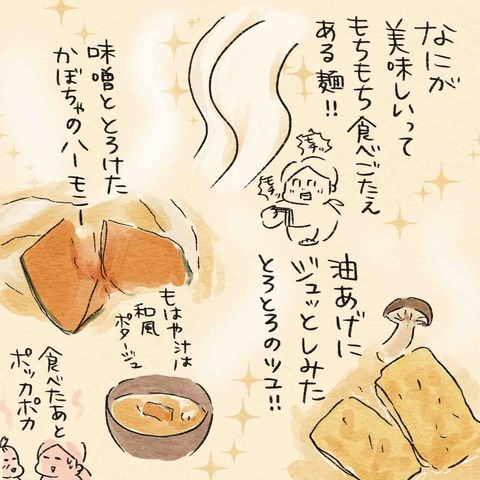 なにが
美味しいって
もちもち食べごたえ
ある麺!!
味噌ととろけた
かぼちゃのハーモニー
油あげに
ジュッとしみた
とろとろのツユ!!
もはや汁は
和風
ポタージュ
食べたあと
ポッカポカ